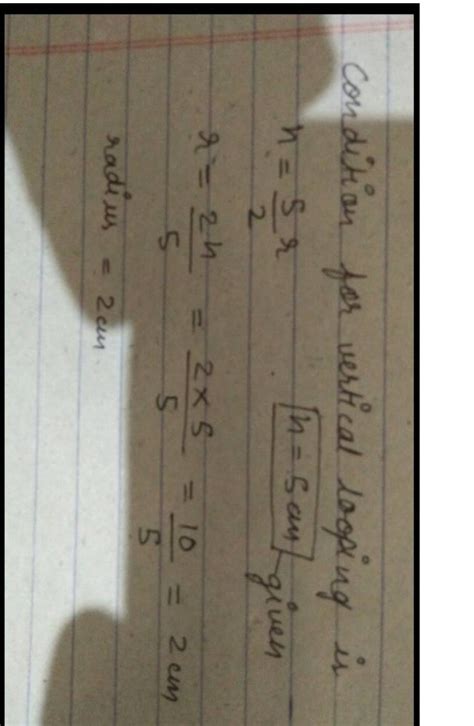 Condition for vertical looping is
h = 5/2 r   h = 5cm given
r = 2h/5 = 2×5/5 = 10/5 = 2 cm
radius = 2cm